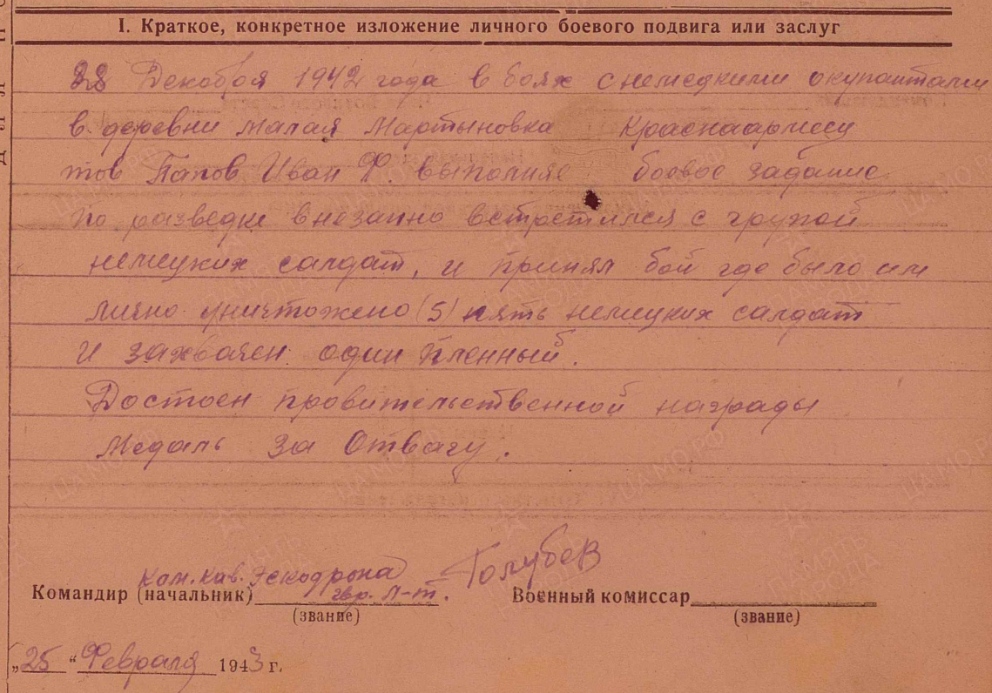 I. Краткое, конкретное изложение личного боевого подвига или заслуг
28 Декобря 1942 года в боях с немецкими окупантами
в деревни Малая Мартыновка Краснаармеец
тов Папов Иван Ф. выполняе боевое задание
по разведки внезапно встретился с групой
немецких салдат, и принял бой где было им
лично уничтожено (5) пять немецких салдат
и захвачен один пленный.
Достоен провительственной награды
Медаль За Отвагу.
Ком. Кав. Эскодрона
гвр. Л-т. Голубев
Командир (начальник) Военный комиссар
(звание) (звание)
„25 “ Февраля 1943 г.